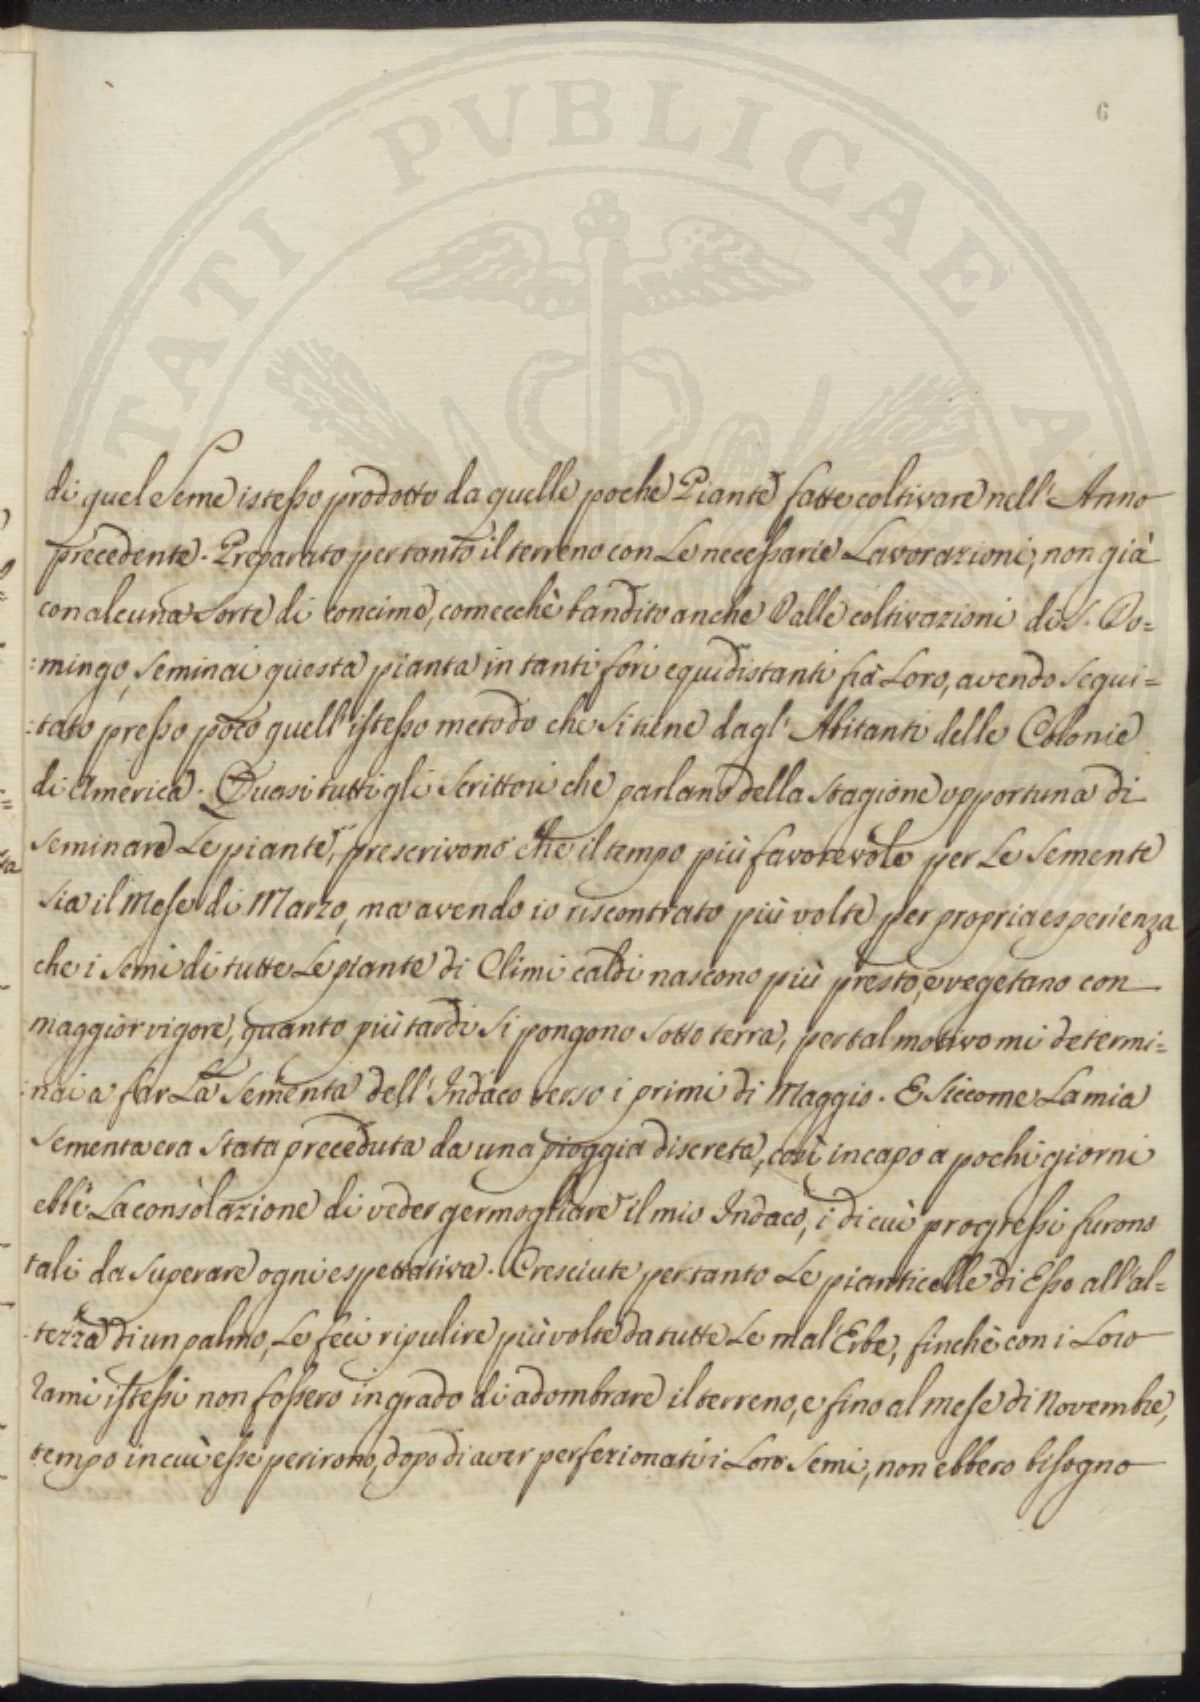 6
di quel Seme istesso prodotto da quelle poche Piante fatte coltivare nell' Anno
precedente. Preparato pertanto il terreno con Le necessarie Lavorazioni, non già
con alcuna Sorte di concime, comecchè bandito anche Dalle coltivazioni di S. Do=
:mingo, Seminai questa pianta in tanti fori equidistanti frà Loro, avendo Segui=
:tato presso poco quell' istesso metodo che Si tiene dagl' Abitanti delle Colonie
di America. Quasi tutti gli Scrittori che parlano della Stagione opportuna di
Seminare Le piante, prescrivono che il tempo più favorevole per Le Semente
Sia il Mese di Marzo, ma avendo io riscontrato più volte per propria esperienza
che i Semi di tutte Le piante di Climi caldi nascono più presto, e vegetano con
maggior vigore, quanto più tardi Si pongono Sotto terra, per tal motivo mi determi=
:nai a far La Sementa dell' Indaco verso i primi di Maggio. E Siccome La mia
Sementa era Stata preceduta da una pioggia discreta, così in capo a pochi giorni
ebbi La consolazione di veder germogliare il mio Indaco, i di cui progressi furono
tali da Superare ogni espettativa. Cresciute pertanto Le pianticelle di Esso all' al=
:tezza di un palmo, Le feci ripulire più volte da tutte Le mal' Erbe, finchè con i Loro
Rami istessi non fossero in grado di adombrare il terreno, e fino al mese di Novembre,
tempo in cui esse perirono, dopo di aver perfezionati i Loro Semi, non ebbero bisogno
PUBLICAE
TATI